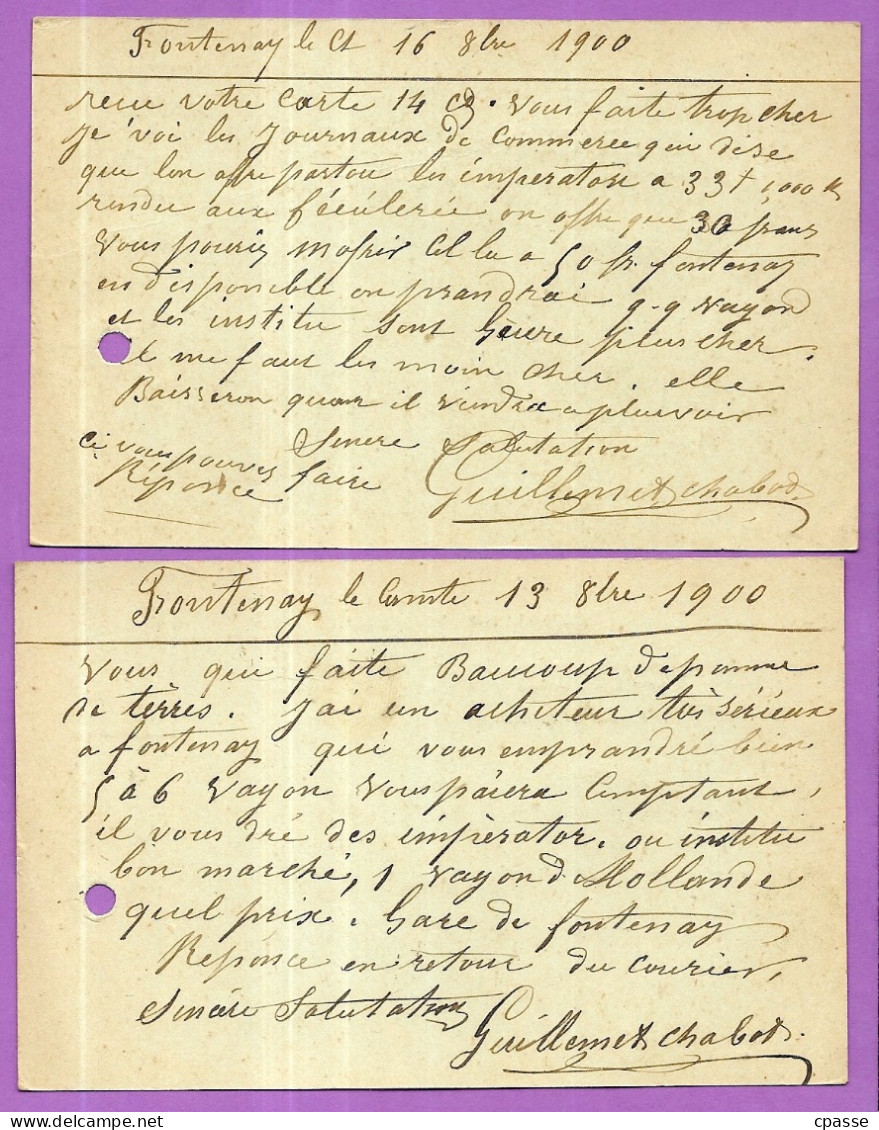 Fontenay le Ct 16 8bre 1900
recue votre carte 14 Ct. Vous faite trop cher
je voi les Journaux de Commerce qui dise
que lon offre partou les imperatore a 33f 1,000 Ks
rendu aux féculerie on offre que 30 frans
Vous pouriez mofrir cella a 50 fr. fontenay
en disponible on prandrai q.q vagond
et les institu sont Guere plus cher.
il me faut les moin cher. elle
Baisseron quan il viendra a pleuvoir
Sincere Salutation
ci vous pouvez faire
Réponce
Guillemet Chabot
Fontenay le Comte 13 8bre 1900
Vous qui faite Baucoup de pomme
de tèrres. J'ai un acheteur très sérieux
a fontenay qui vous emprandré bien
5 à 6 Vagon Vous païera Comptant,
il vou dré des impèrator. ou institu
bon marché, 1 vagond Hollande
quel prix. Gare de fontenay
Reponce en retour du courier,
Sincère Salutation
Guillemet Chabot.
cpasse